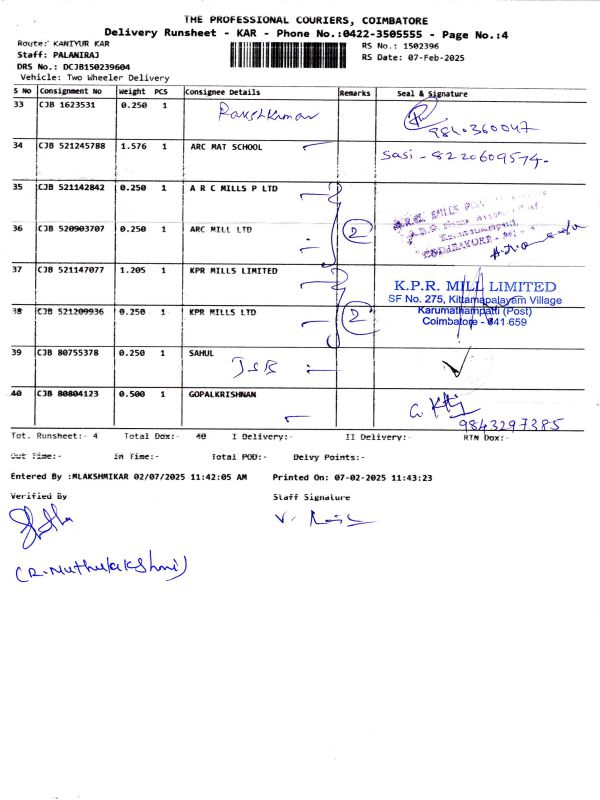 THE PROFESSIONAL COURIERS, COIMBATORE
Delivery Runsheet - KAR - Phone No.:0422-3505555 - Page No.:4
Route: KANIYUR KAR RS No.: 1502396
Staff: PALANIRAJ RS Date: 07-Feb-2025
DRS No.: DCJB150239604
Vehicle: Two Wheeler Delivery
S No Consignment No Weight PCS Consignee Details Remarks Seal & Signature
33 CJB 1623531 0.250 1 Rakshkumar
9840360047
34 CJB 521245788 1.576 1 ARC MAT SCHOOL
Sasi - 8220609574-
35 CJB 521142842 0.250 1 A R C MILLS P LTD
36 CJB 520903707 0.250 1 ARC MILL LTD 2
COIMBATORE
37 CJB 521147077 1.205 1 KPR MILLS LIMITED
K.P.R. MILL LIMITED
SF No. 275, Kittampalayam Village
38 CJB 521209936 0.250 1 KPR MILLS LTD 2
Karumathampatti (Post)
Coimbatore - 641 659
39 CJB 80755378 0.250 1 SAHUL
40 CJB 80804123 0.500 1 GOPALKRISHNAN
9843297385
Tot. Runsheet:- 4 Total Dox:- 40 I Delivery:- II Delivery:- RTN Dox:-
Out Time:- In Time:- Total POD:- Delvy Points:-
Entered By :MLAKSHMIKAR 02/07/2025 11:42:05 AM Printed On: 07-02-2025 11:43:23
Verified By Staff Signature
(R. Muthulakshmi)